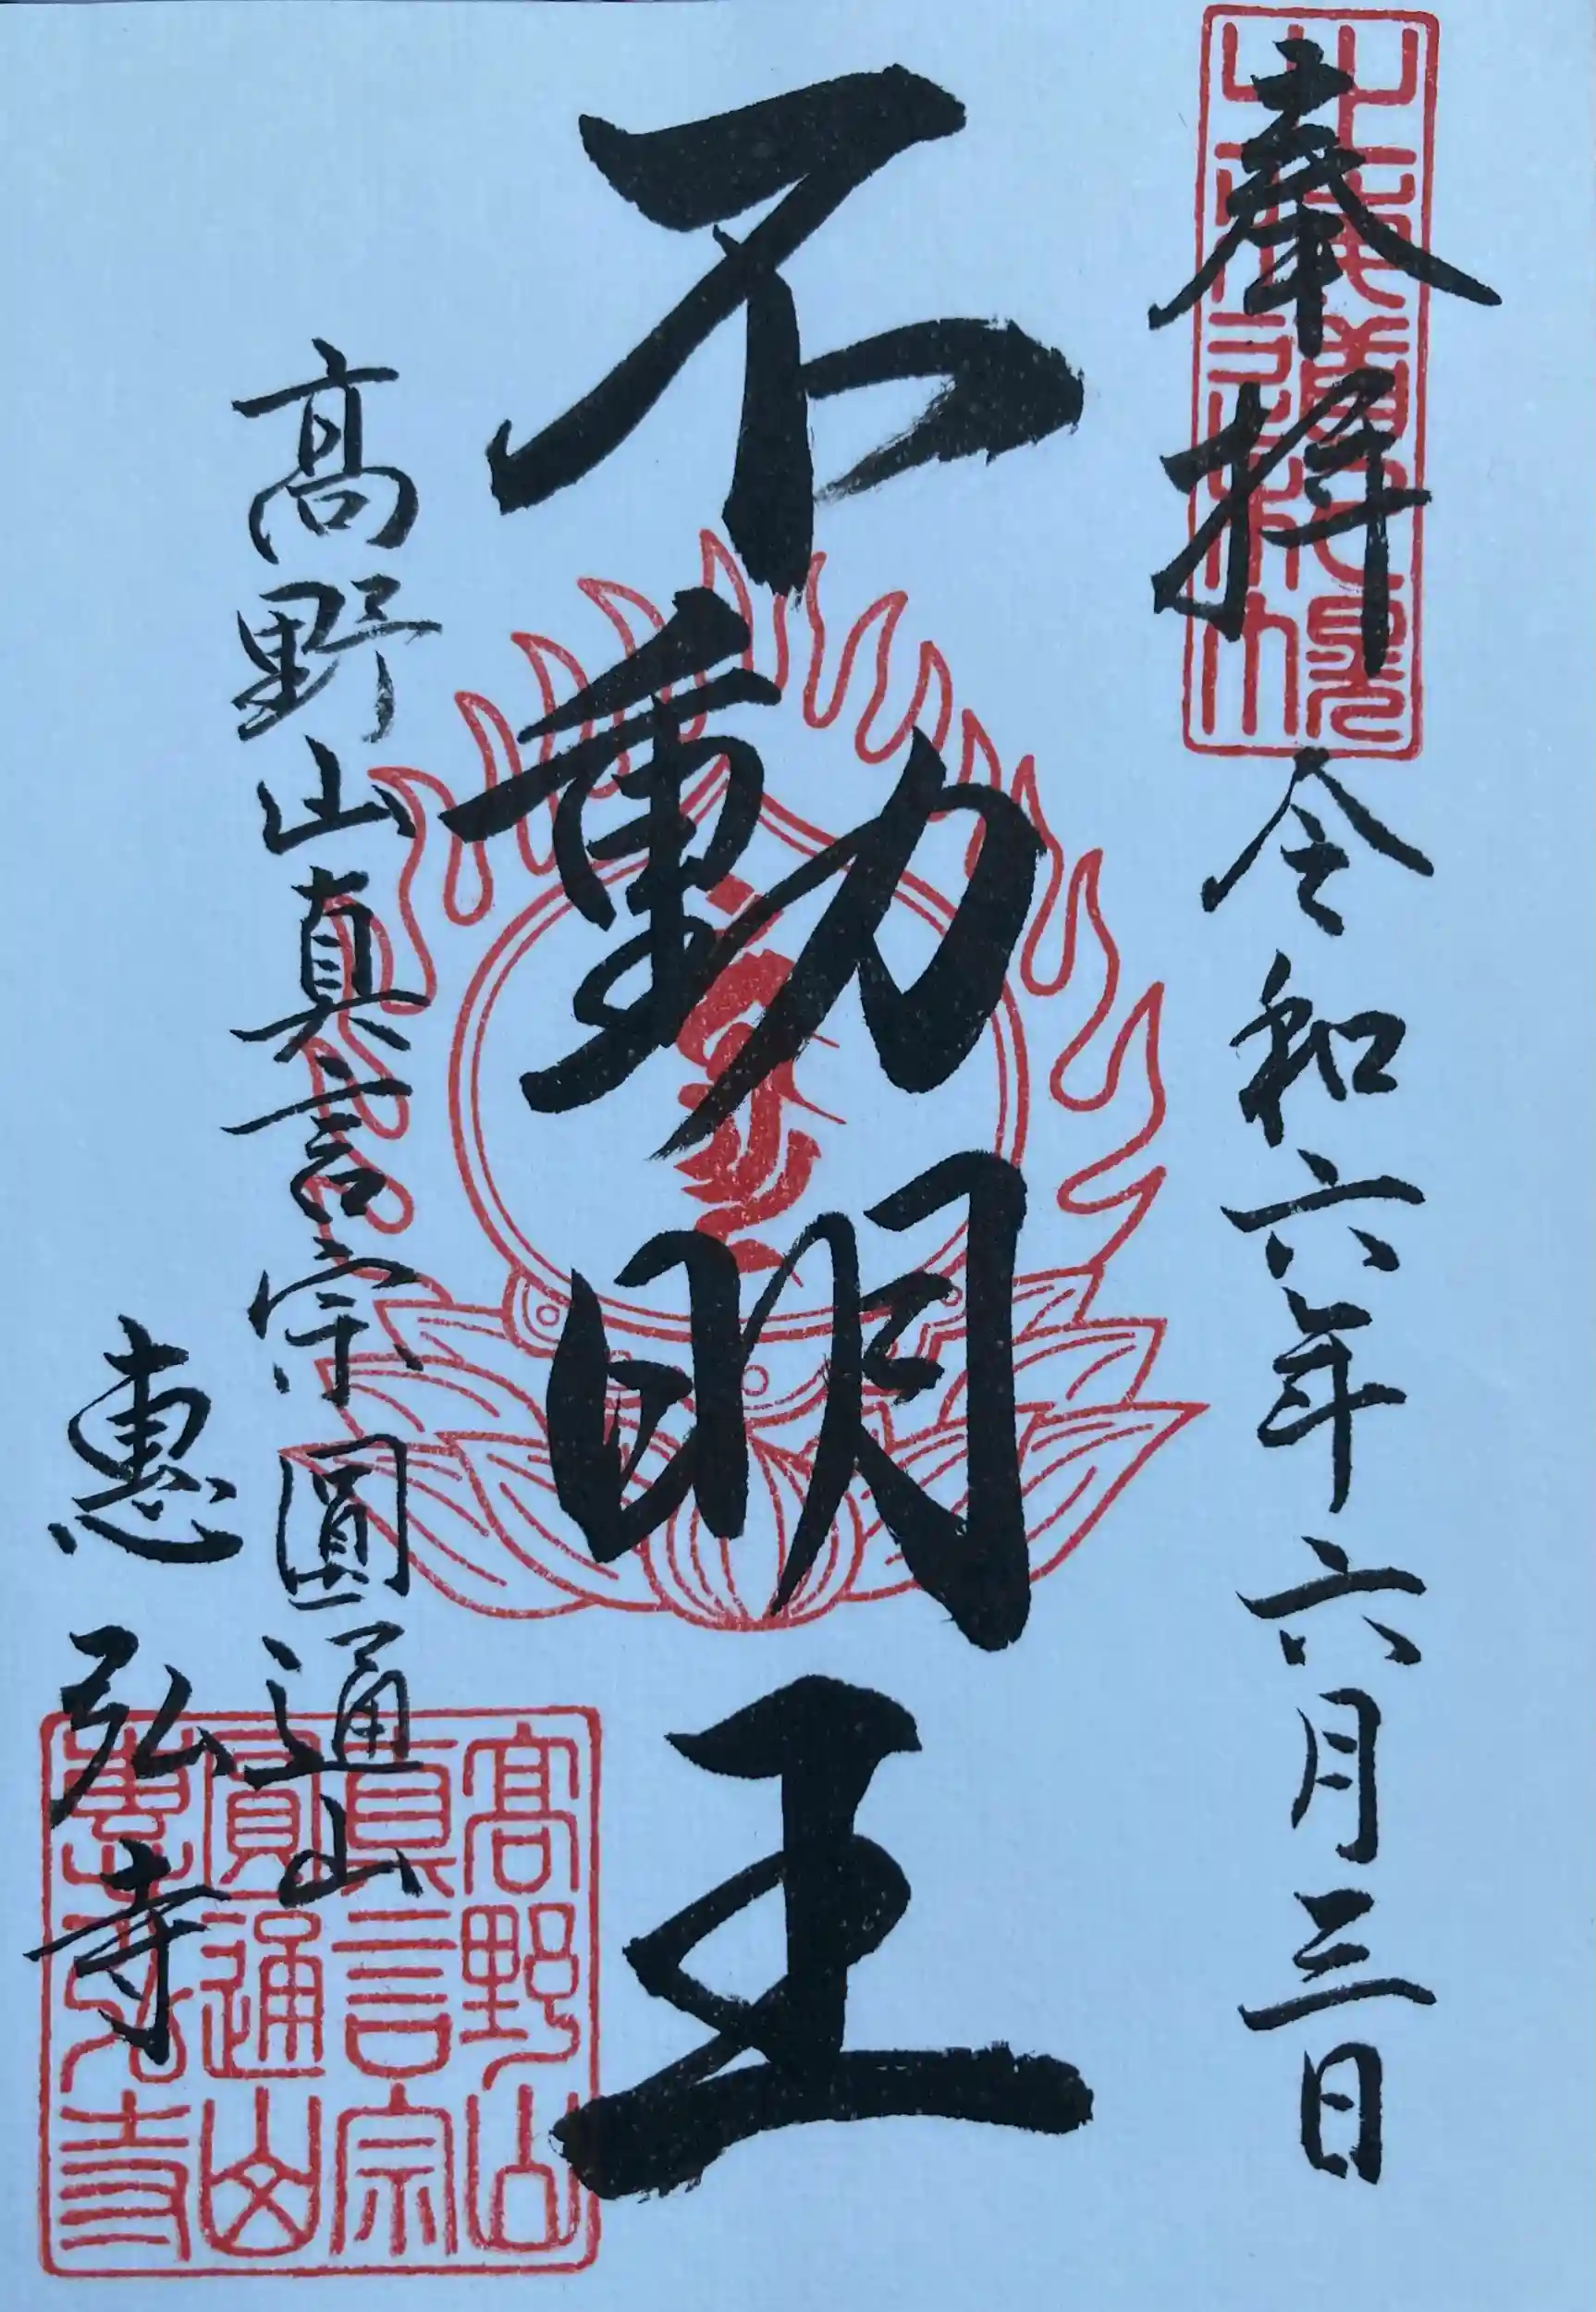 奉拝 令和六年六月三日
不動明王
高野山真言宗圓通山
惠弘寺
高野山
真言宗
圓通山
惠弘寺